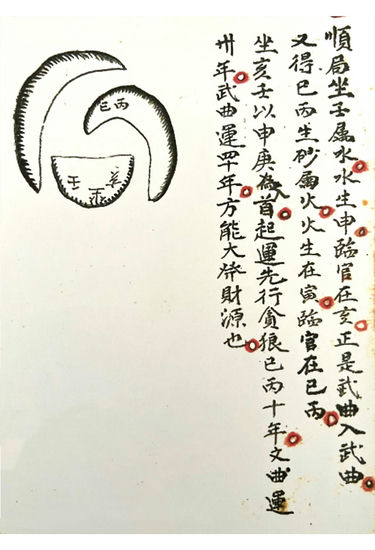 順局坐壬属水水生申臨官在亥正是武曲入武曲
又得巳丙生砂属火火生在寅臨官在巳丙
坐亥壬以申庚為首起運先行貪狼巳丙十年文曲運
卅年武曲運四十年方能大發財源也
巳丙
壬 亥